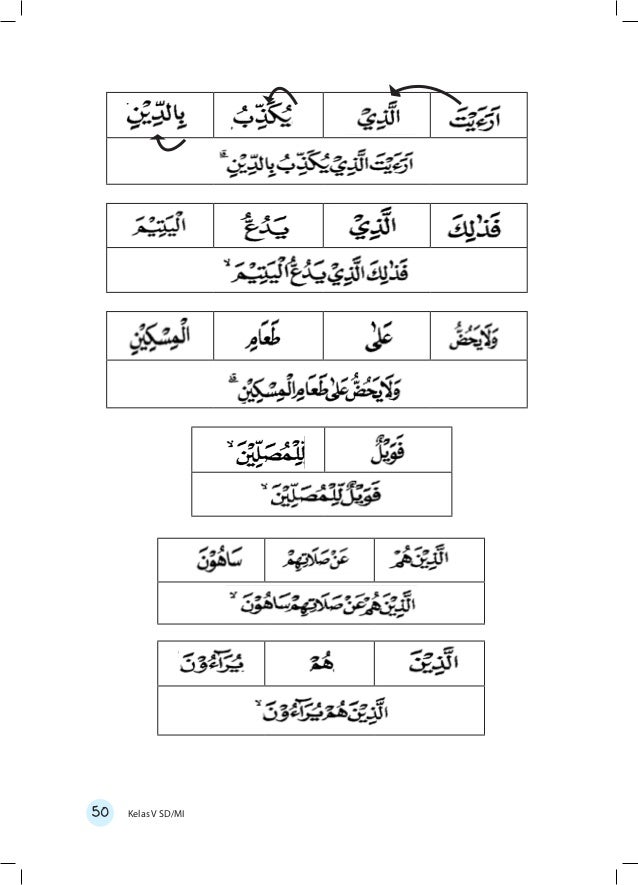 اَرَءَيْتَ الَّذِيْ يُكَذِّبُ بِالدِّيْنِ
اَرَءَيْتَ الَّذِيْ يُكَذِّبُ بِالدِّيْنِۗ
فَذٰلِكَ الَّذِيْ يَدُعُّ الْيَتِيْمَ
فَذٰلِكَ الَّذِيْ يَدُعُّ الْيَتِيْمَۙ
وَلَا يَحُضُّ عَلٰى طَعَامِ الْمِسْكِيْنِ
وَلَا يَحُضُّ عَلٰى طَعَامِ الْمِسْكِيْنِۗ
فَوَيْلٌ لِّلْمُصَلِّيْنَۙ
فَوَيْلٌ لِّلْمُصَلِّيْنَۙ
الَّذِيْنَ هُمْ عَنْ صَلَاتِهِمْ سَاهُوْنَ
الَّذِيْنَ هُمْ عَنْ صَلَاتِهِمْ سَاهُوْنَۙ
الَّذِيْنَ هُمْ يُرَاۤءُوْنَ
الَّذِيْنَ هُمْ يُرَاۤءُوْنَۙ
50 Kelas V SD/MI